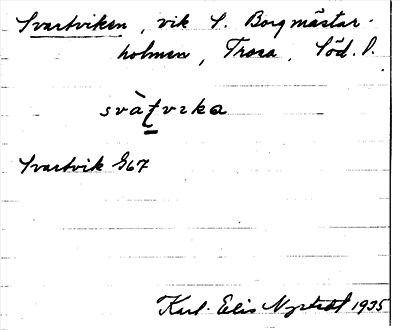 Svartviken, vik S. Borgmästar-
holmen, Trosa, Söd. l.
svàt̠vıka
Svartvik G67
Karl-Elis Nystedt 1935